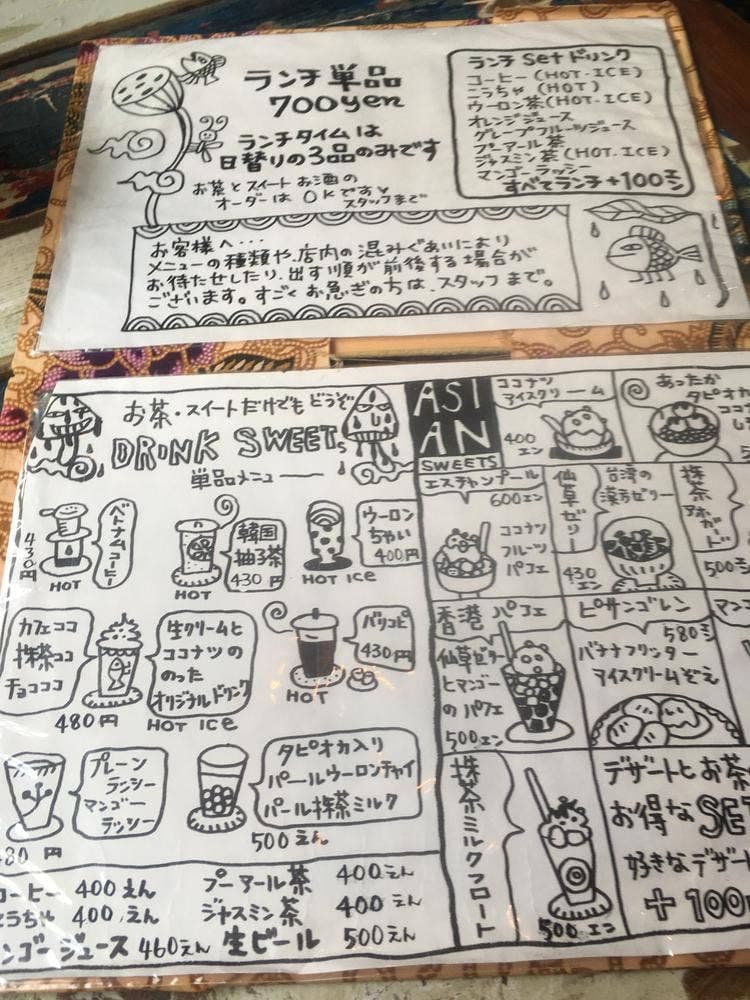 ランチ単品
700yen
ランチタイムは
日替りの3品のみです
お茶とスイートお酒の
オーダーは OKです
スタッフまで
ランチ Set ドリンク
コーヒー (HOT・ICE)
こうちゃ (HOT)
ウーロン茶 (HOT・ICE)
オレンジジュース
グレープフルーツジュース
プーアール茶
ジャスミン茶 (HOT・ICE)
マンゴーラッシー
すべてランチ+100エン
お客様へ・・・
メニューの種類や、店内の混みぐあいにより
お待たせしたり、出す順が前後する場合が
ございます。すごくお急ぎの方は、スタッフまで。
お茶・スイートだけでもどうぞ
DRINK SWEETS
単品メニュー
ベトナムコーヒー
430円
HOT
韓国
柚子茶
430円
HOT
ウーロン
ちゃい
400円
HOT Ice
カフェココ
抹茶ココ
チョコココ
480円
生クリームと
ココナツの
のった
オリジナルドリンク
HOT Ice
バリコピ
430円
HOT
プレーン
ラッシー
マンゴー
ラッシー
円
タピオカ入り
パールウーロンチャイ
パール抹茶ミルク
500えん
コーヒー 400えん
こうちゃ 400えん
ンゴージュース 460えん
プーアール茶 400えん
ジャスミン茶 400えん
生ビール 500えん
ASIAN
SWEETS
ココナツ
アイスクリーム
400
エン
あったか
タピオカ
ココ
エスチャンプール
600エン
ココナツ
フルーツ
パフェ
仙草ゼリー
台湾の
漢方ゼリー
430
エン
抹茶アボガド
500
香港パフェ
仙草ゼリー
とマンゴー
のパフェ
500エン
ピサンゴレン
580エン
バナナフリッター
アイスクリームぞえ
マン
抹茶ミルクフロート
500エン
デザートとお茶
お得なSE
好きなデザー
+100